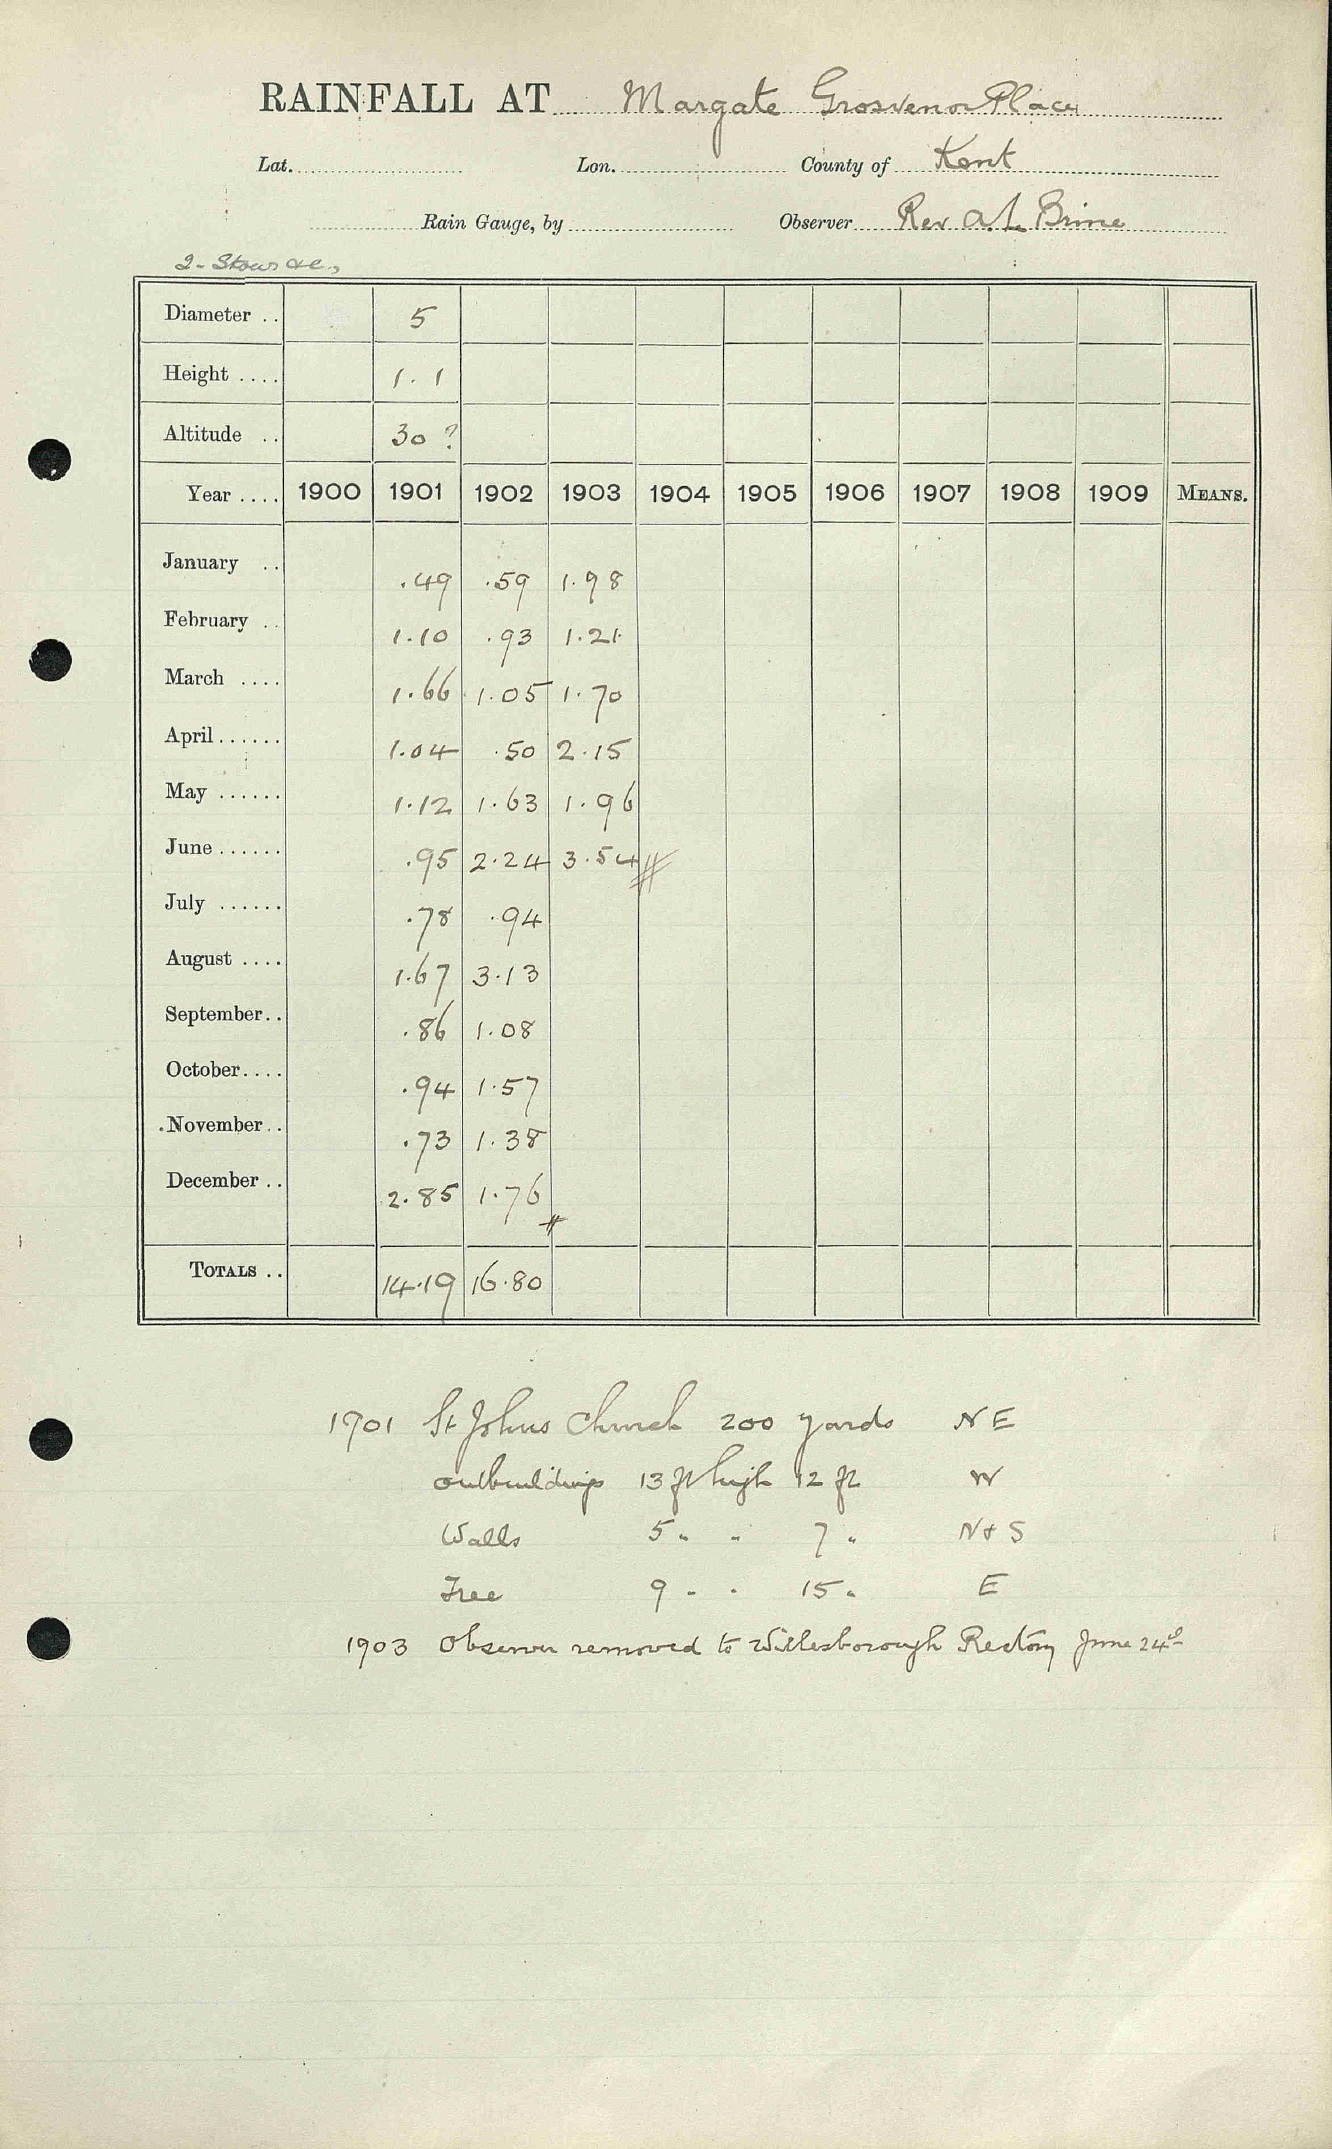 RAINFALL AT Margate Grosvenor Place
Lat. Lon. County of Kent
Rain Gauge, by Observer Rev A.L. Brine
2 - Stour &c.,
Diameter .. 5
Height .... 1.1
Altitude .. 30?
Year .... 1900 1901 1902 1903 1904 1905 1906 1907 1908 1909 MEANS.
January .. .49 .59 1.98
February .. 1.10 .93 1.21
March .... 1.66 1.05 1.70
April ...... 1.04 .50 2.15
May ...... 1.12 1.63 1.96
June ...... .95 2.24 3.54
July ...... .78 .94
August .... 1.67 3.13
September.. .86 1.08
October.... .94 1.57
November.. .73 1.38
December .. 2.85 1.76
TOTALS .. 14.19 16.80
1901 St Johns Church 200 yards NE
outbuildings 13 ft high 12 ft W
Walls 5 " " 7 " N & S
Tree 9 " " 15 " E
1903 Observer removed to Willesborough Rectory June 24th